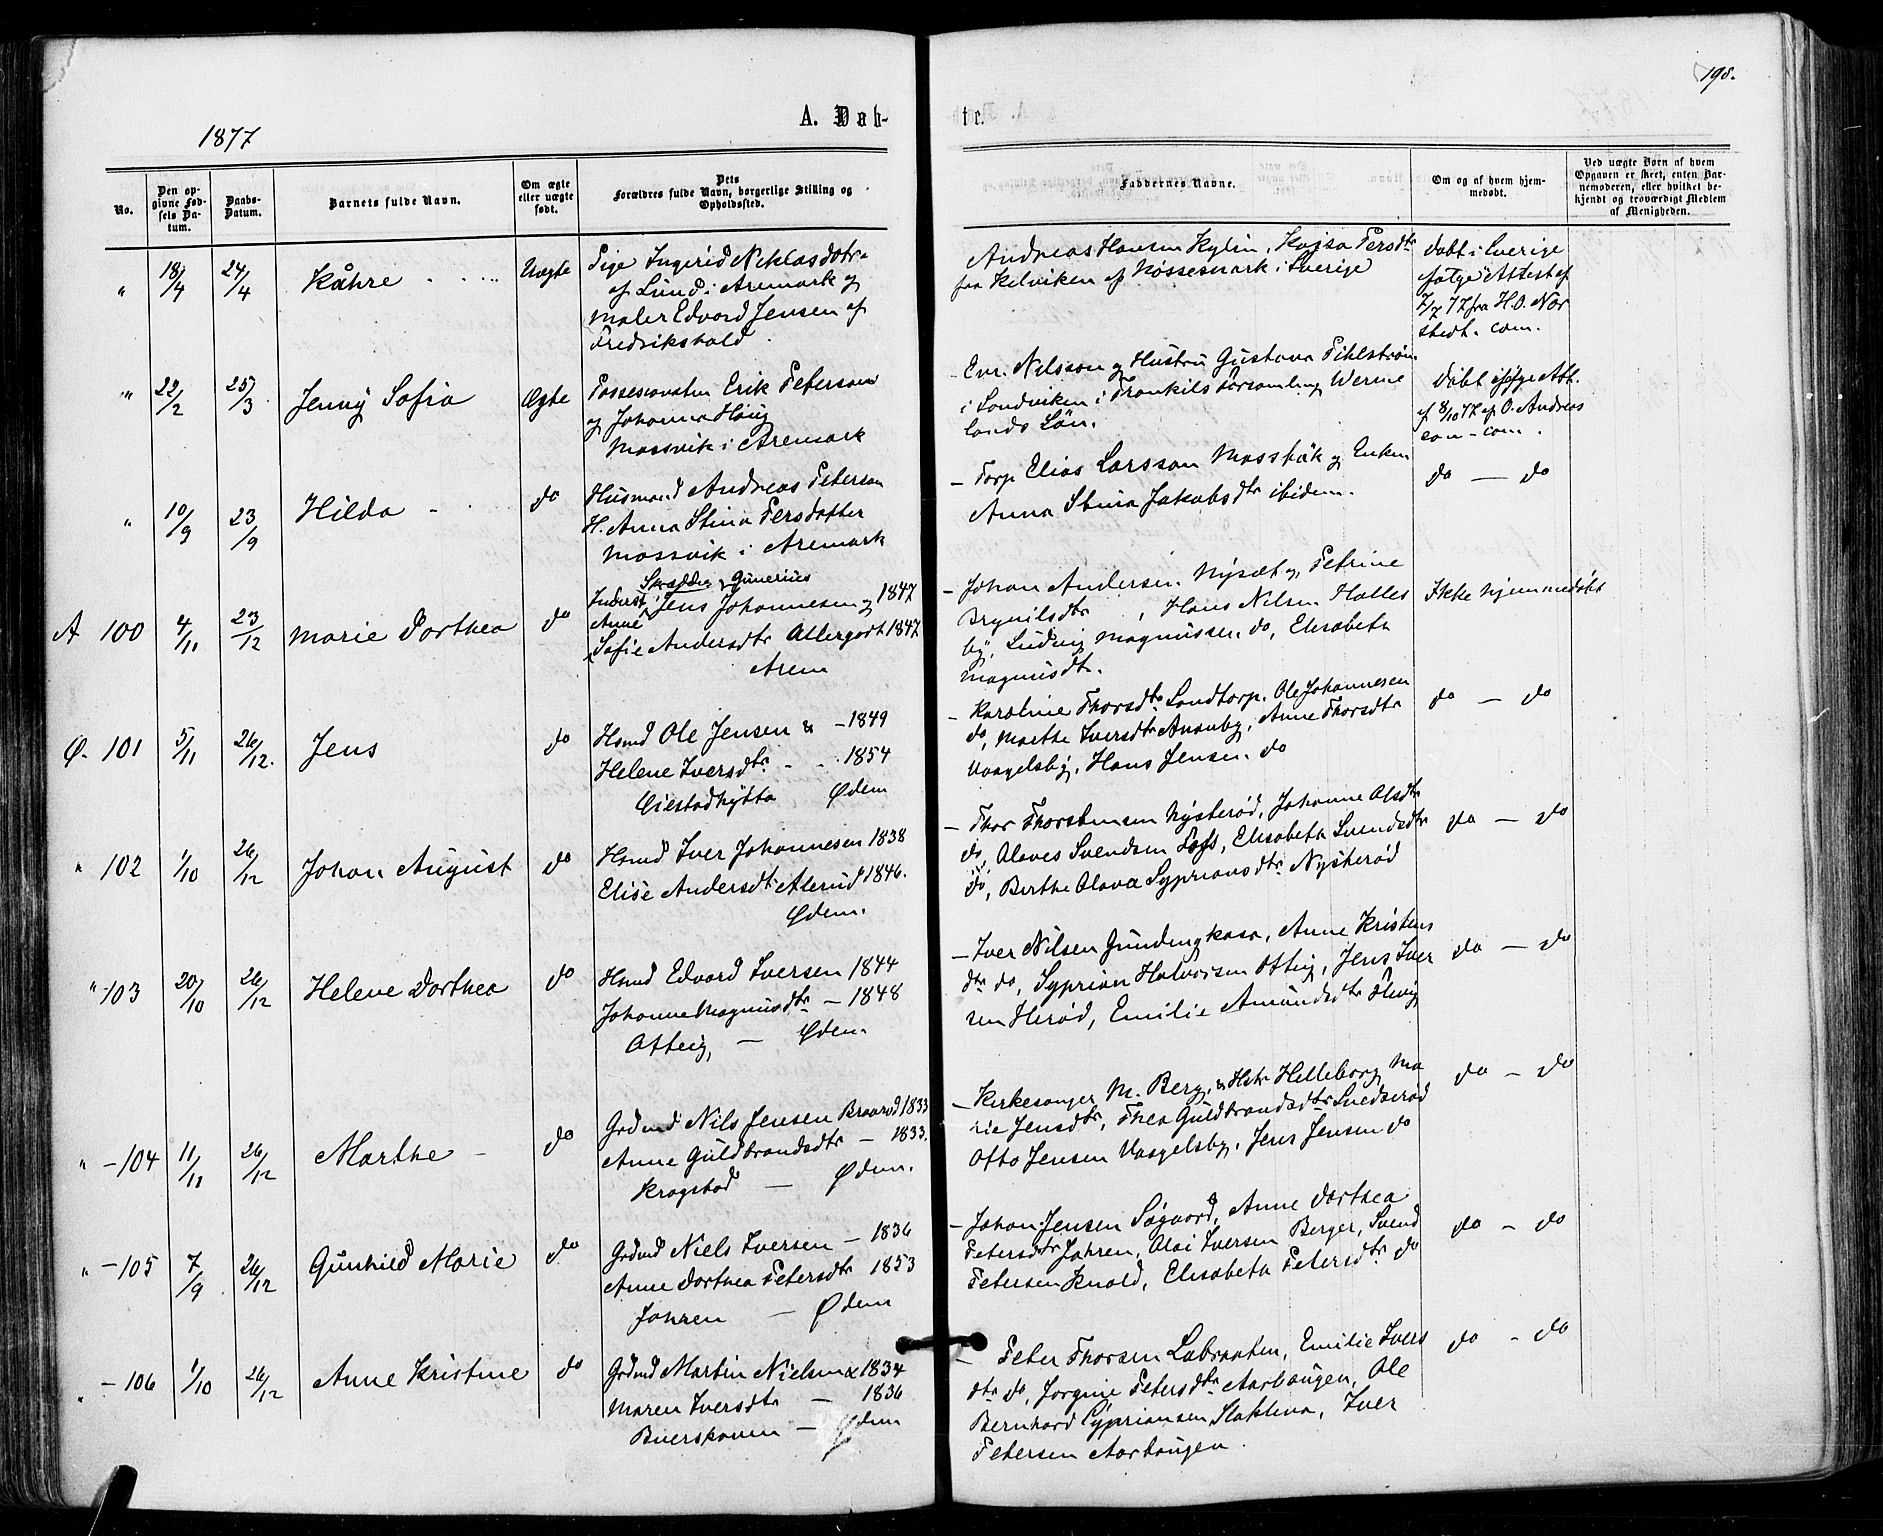 198.
A. Døb-
te.
1877
No.
Den op-
givne Fød-
sels Da-
tum.
Daabs-
Datum.
Barnets fulde Navn.
Om ægte
eller uægte
født.
Dets
Forældres fulde Navn, borgerlige Stilling og
Opholdssted.
Faddernes Navne.
Om og af hvem hjem-
medøbt.
Ved uægte Børn af hvem
Opgaven er skeet, enten Bar-
nemoderen, eller hvilket be-
kjendt og troværdigt Medlem
af Menigheden.
" 18/4 24/4 Kåhre Uægte
Pige Ingerid Niklasdotr
af Lund i Aremark og
Maler Edvard Jensen af
Fredrikshald.
Andreas Hansen Kylin, Kajsa Persdtr
fra Kilviken af Nössesmark i Sverige
Døbt i Sverige
ifølge Attest af
7/7 77 fra H.O. Nor
stedt. com.
" 22/2 25/3 Jenny Sofia Ægte
Possessionaten Erik Peterson
og Johanna Haug
Massvik i Aremark
- Nilsson og Hustru Gustava Pihlström
i Sandviken i Trankils Forsamling Werme
lands Län.
Døbt ifølge Att.
af 8/10 77 af O. Andreas
son - com.
" 10/9 23/9 Hilda do
Husmand Andreas Peterson
H. Anna Stina Persdotter
Massvik i Aremark
- Torp Elias Larsson Massbäk og Enken
Anna Stina Jakobsdtr ibidem.
do - do
A 100 4/11 23/12 Marie Dorthea do
Skrædder Gunerius
Inderst Jens Johannesen og 1847
Anne
Sofie Andersdtr Allergodt 1847
Arem
- Johan Andersen Nysæt og Petrine
Brynilsdtr, Hans Nilsen Halles
by, Ludvig Magnussen do, Elisabeth
Magnusdtr.
Ikke hjemmedøbt
Ø. 101 5/11 26/12. Jens do
Hsmd Ole Jensen & - 1849
Helene Iversdtr - 1854
Øiestadhytta Ødem
- Karoline Thorsdtr Sandtorp, Ole Johannesen
do, Marthe Iversdtr Anonby, Anne Thorsdtr
Vaagelsby, Hans Jensen do
do - do
" 102 1/10 26/12 Johan August do
Hsmd Iver Johannesen 1838
Elise Andersdtr Alerud 1846.
Ødem.
- Thor Thorstensen Nysterød, Johanne Olsdtr
do, Olaves Svendsen, Elisabeth Svendsdtr
do, Berthe Olava Syprians dtr Nysterød
do - do
" 103 20/10 26/12 Helene Dorthea do
Hsmd Edvard Iversen 1844
Johanne Magnusdtr - 1848
Otteig, - Ødem.
- Iver Nilsen Gundengkasa, Anne Kristens
dtr do, Syprian Halvorsen Otteig, Jens Iver
sen Herød, Emilie Amundsdtr
do - do
" - 104 11/11 26/12 Marthe - do
Grdmd Nils Jensen Braarød 1833
Anne Guldbrandsdtr - 1833.
Kragstad - Ødem.
- Kirkesanger M. Berg, & Hstr Helleborg Ma
rie Jensdtr, Thea Guldbrandsdtr Svedserød
Otto Jensen Vaagelsby, Jens Jensen do
do - do
" - 105 7/9 26/12 Gunhild Marie do
Grdmd Niels Iversen - 1836
Anne Dorthea Petersdtr 1853
Jahren - Ødem
- Johan Jensen Søgaard, Anne Dorthea
Petersdtr Jahren, Olai Iversen Berger, Svend
Petersen Knold, Elisabeth Petersdtr do
do - do
" - 106 1/10 26/12 Anne Kristine do
Grdmd Martin Nielsen & 1834
Maren Iversdtr - 1836
Buerskoven - Ødem
- Peter Thorsen Labraaten, Emilie Ivers
dtr do, Jorgine Petersdtr Aarhaugen, Ole
Bernhard Cypriansen Slakleva, Iver
Petersen Aarhaugen.
do - do